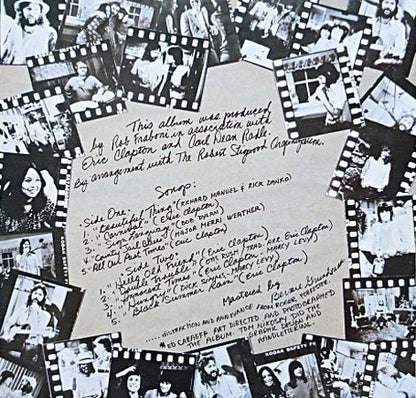 This album was produced
by Rob Fraboni in association with
Eric Clapton and Carl Dean Radle.
By arrangement with The Robert Stigwood Organization.
Songs:
Side One:
1. "Beautiful Thing" (RICHARD MANUEL & RICK DANKO)
2. (Eric Clapton)
3. "Sign Language" (BOB DYLAN)
4. "County Jail Blues" (MAJOR MERRI WEATHER)
5. "All Our Past Times" (Eric Clapton)
Side Two:
1. "Hello Old Friend" (Eric Clapton)
2. "Double Trouble" (OTIS RUSH)
3. "Innocent Times" (Eric Clapton, MARCY LEVY)
4. "Hungry" (DICK SIMS, MARCY LEVY)
5. "Black Summer Rain" (Eric Clapton)
(TRAD. ARR. Eric Clapton)
Mastered by
DISTRACTION AND ANNOYANCE FROM ROGER FORRESTER.
ED CARAEFF ART DIRECTED AND PHOTOGRAPHED
THE ALBUM. TOM NIKOSEY DID THE
GRAPHIC DESIGN AND
HANDLETTERING.
KODAK SAFETY